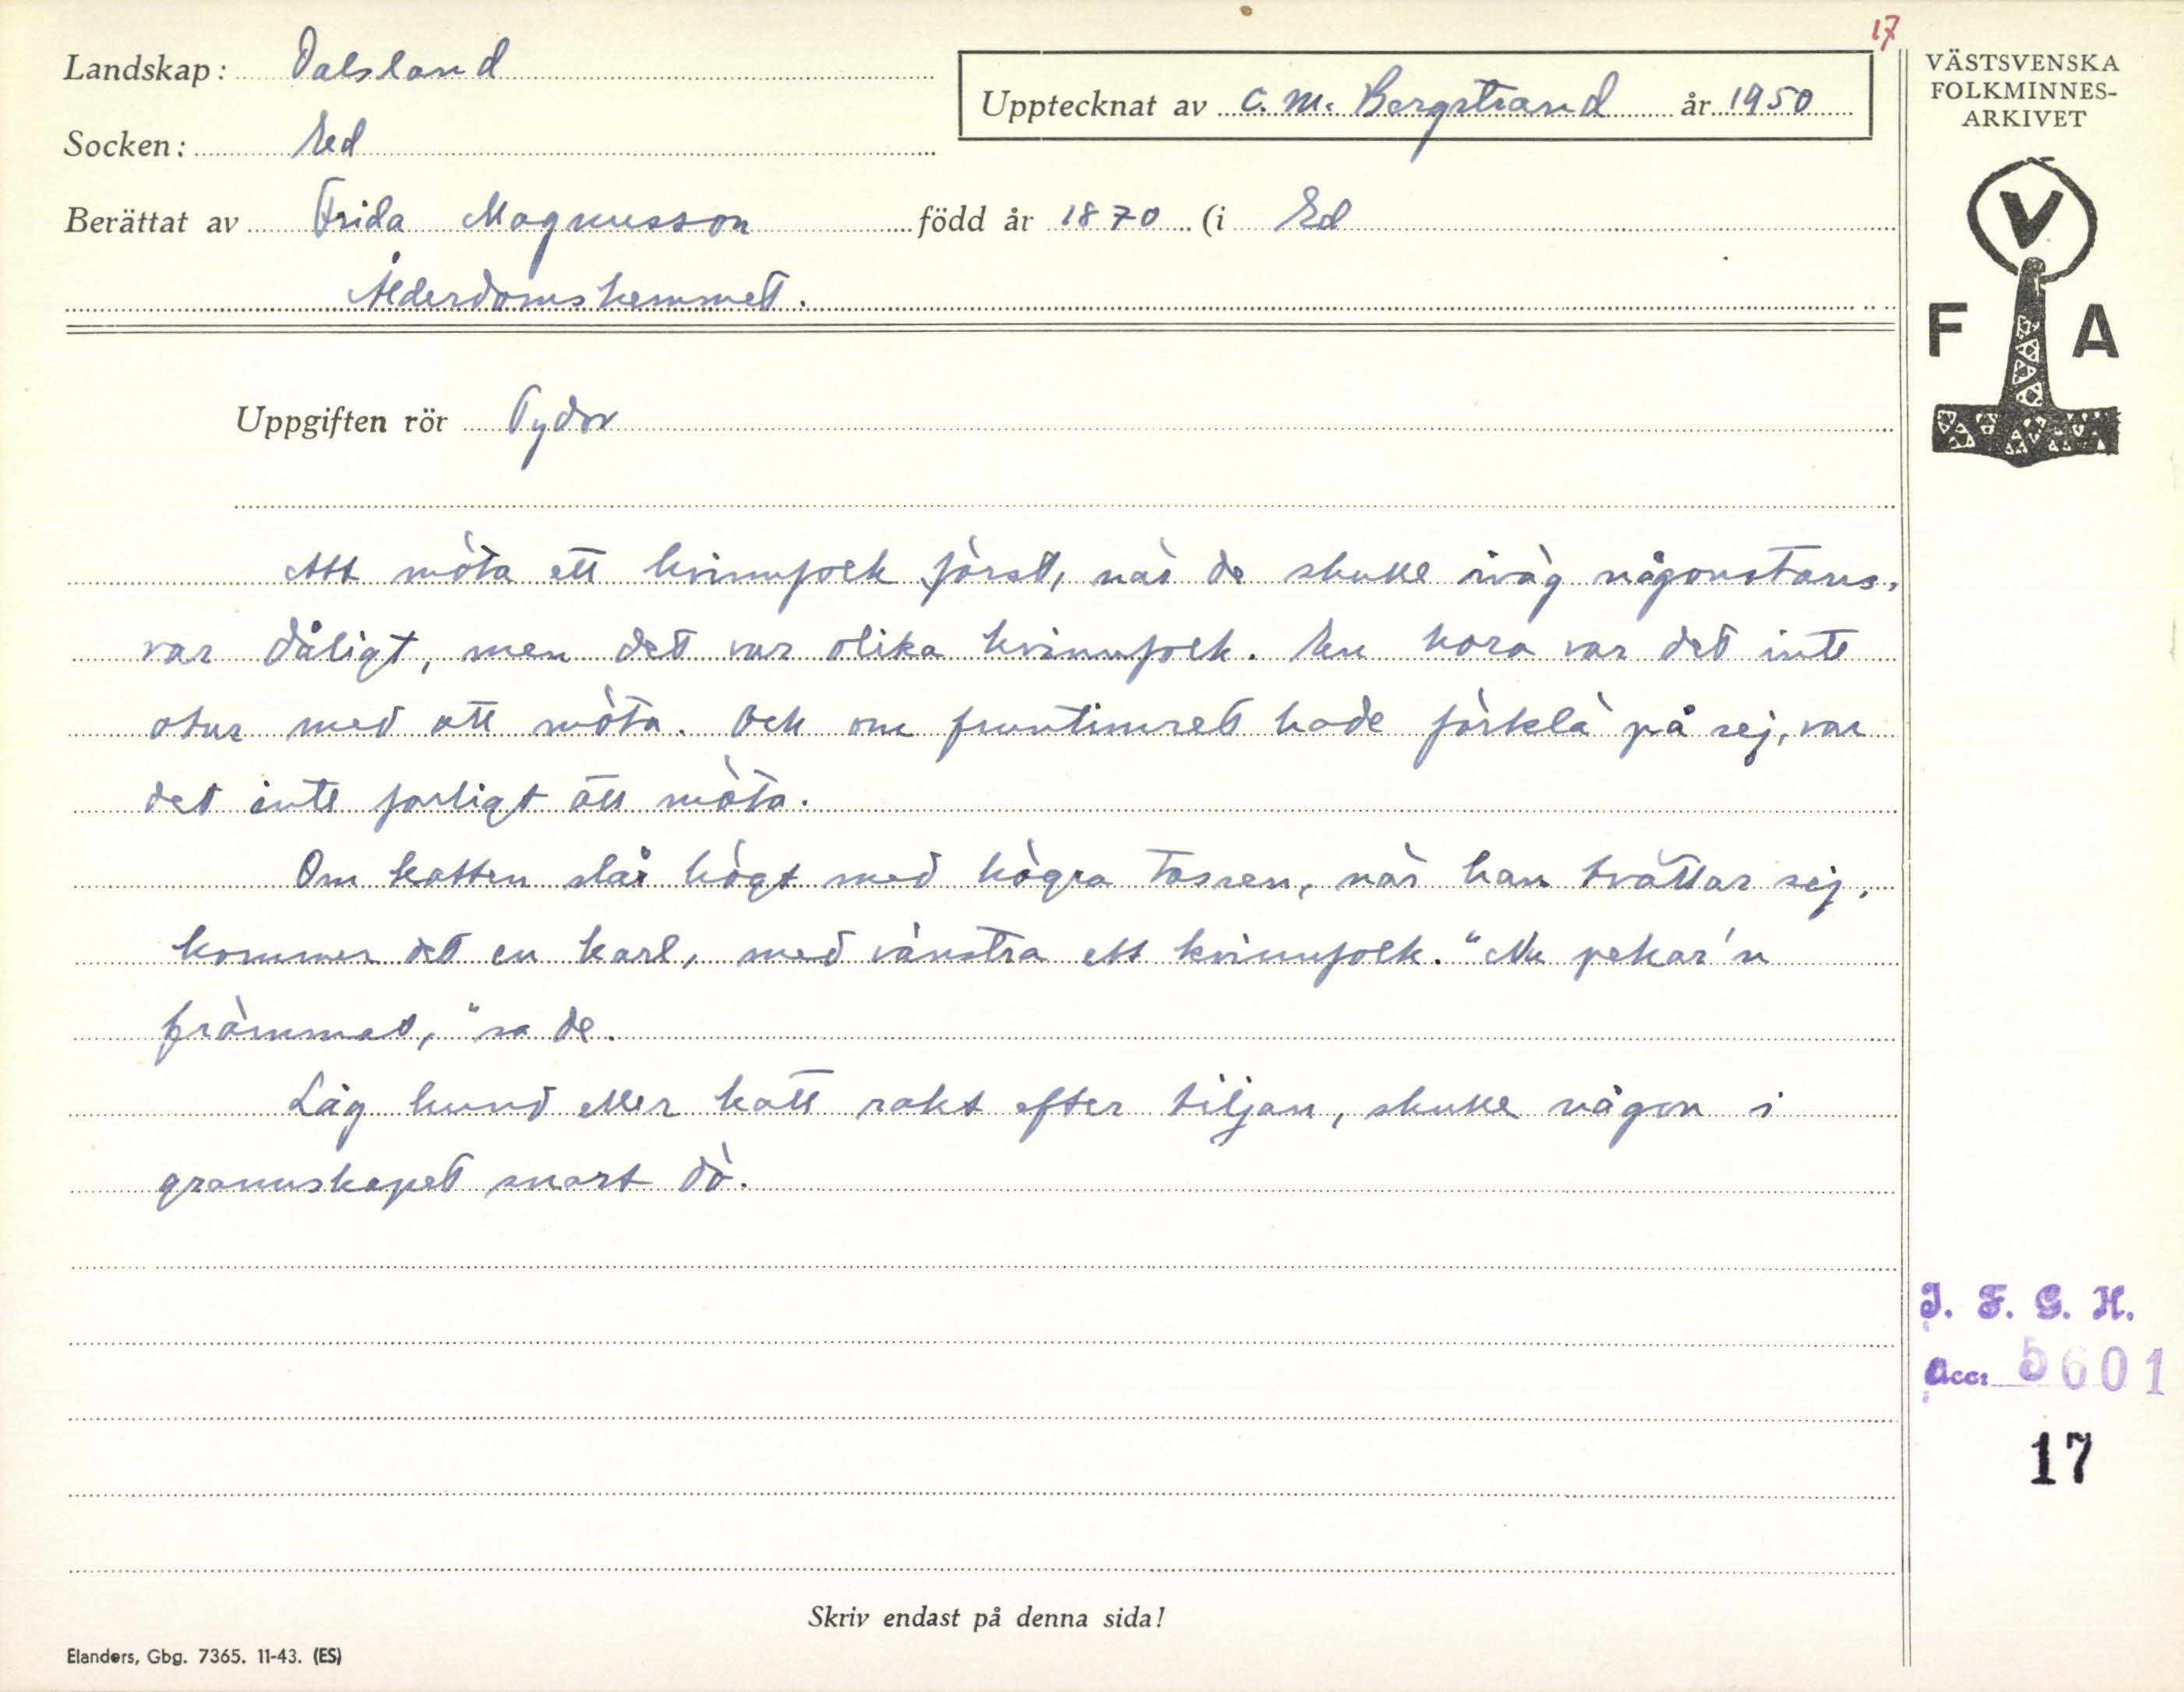 17
Landskap: Dalsland
Upptecknat av C. M. Bergstrand år 1950
Socken: Ed
Berättat av Frida Magnusson född år 1870 (i Ed
Ålderdomshemmet.
VÄSTSVENSKA
FOLKMINNES-
ARKIVET
V
F A
Uppgiften rör Tydor
Att möta ett kvinnfolk först, när de skulle iväg någonstans,
var dåligt, men det var olika kvinnfolk. En hora var det inte
otur med att möta. Och om fruntimret hade förklä på sej, var
det inte farligt att möta.
Om katten slår högt med högra tassen, när han tvättar sej,
kommer det en karl, med vänstra ett kvinnfolk. "Nu pekar'n
främmat," sa de.
Låg hund eller katt rakt efter tiljan, skulle någon i
grannskapet snart dö.
I. F. G. H.
Acc: 5601
17
Skriv endast på denna sida!
Elanders, Gbg. 7365. 11-43. (ES)